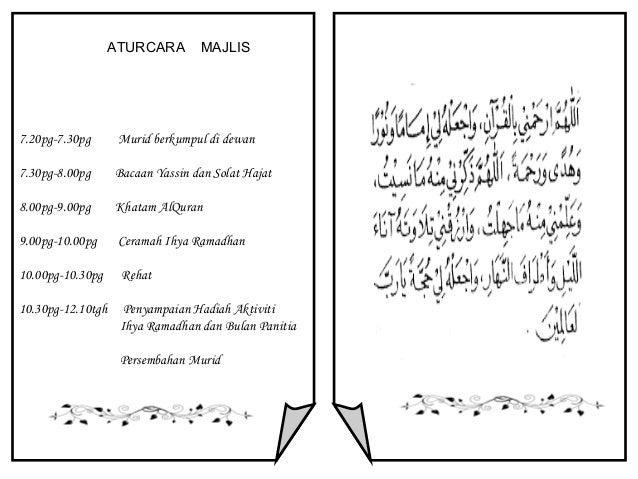 ATURCARA MAJLIS
7.20pg-7.30pg Murid berkumpul di dewan
7.30pg-8.00pg Bacaan Yassin dan Solat Hajat
8.00pg-9.00pg Khatam AlQuran
9.00pg-10.00pg Ceramah Ihya Ramadhan
10.00pg-10.30pg Rehat
10.30pg-12.10tgh Penyampaian Hadiah Aktiviti
Ihya Ramadhan dan Bulan Panitia
Persembahan Murid
اَللّٰهُمَّ ارْحَمْنِيْ بِالْقُرْآنِ، وَاجْعَلْهُ لِيْ إِمَامًا وَنُوْرًا
وَهُدًى وَرَحْمَةً، اَللّٰهُمَّ ذَكِّرْنِيْ مِنْهُ مَا نَسِيْتُ،
وَعَلِّمْنِيْ مِنْهُ مَا جَهِلْتُ، وَارْزُقْنِيْ تِلَاوَتَهُ آنَاءَ
اللَّيْلِ وَأَطْرَافَ النَّهَارِ، وَاجْعَلْهُ لِيْ حُجَّةً يَا رَبَّ
لْعَالَمِيْنَ .